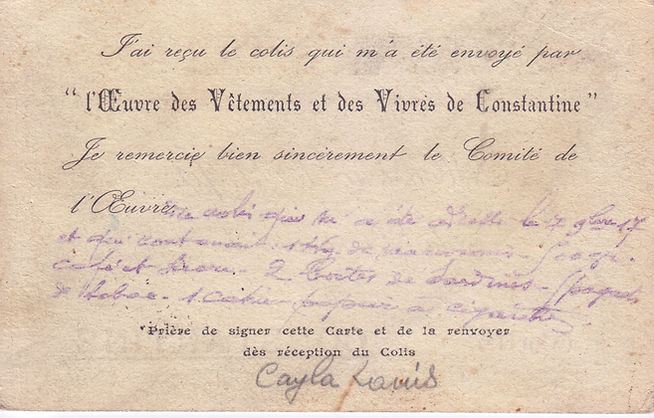 J'ai reçu le colis qui m'a été envoyé par
"l'Œuvre des Vêtements et des Vivres de Constantine"
Je remercie bien sincèrement le Comité de
l'Œuvre.
colis qui m'a été le 7 9bre 17
et qui contenait. 1 Kg de macaronis -
café et - 2 boites de sardines -
de tabac - 1 cahier papier à cigarette
Prière de signer cette Carte et de la renvoyer
dès réception du Colis
Cayla Louis